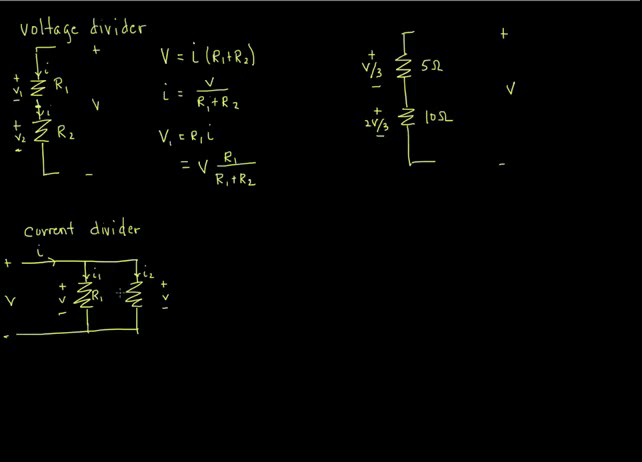 voltage divider
+
i
+ V₁ - R₁
i
V
+ V₂ - R₂
-
V = i (R₁+R₂)
i = V / (R₁+R₂)
V₁ = R₁ i
= V R₁ / (R₁+R₂)
+
+ V/3 - 5Ω
V
+ 2V/3 - 10Ω
-
current divider
i
+
i₁ i₂
V + V - R₁ + V -
-